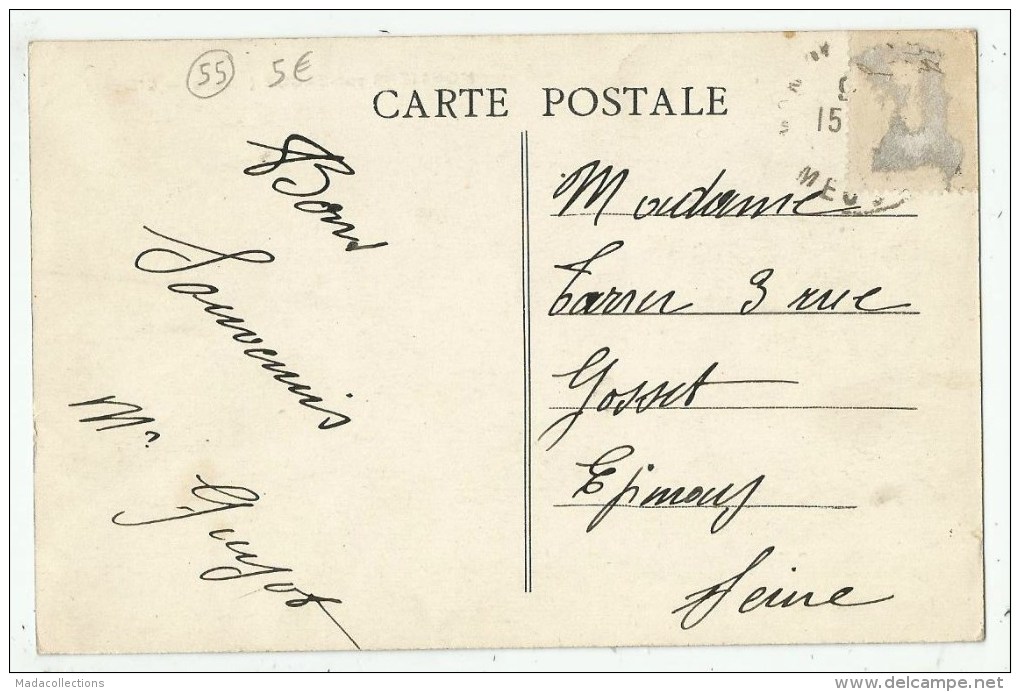 55 5€
CARTE POSTALE
15
MEUS
Bons
Souvenirs
Mr Guyot
Madame
Tarin 3 rue
Gosset
Epinay
Seine
Madacollections
www.delcampe.net